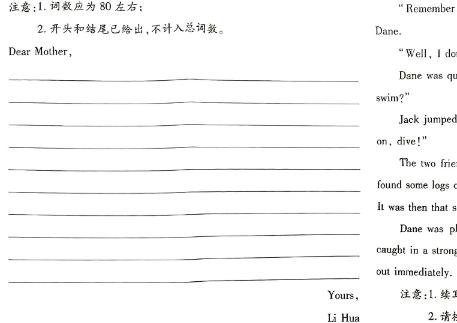 注意:1. 词数应为 80 左右;
2. 开头和结尾已给出,不计入总词数。
Dear Mother,
Yours,
Li Hua
"Remember
Dane.
"Well, I
Dane was
swim?"
Jack jumped
on, dive!"
The two
found some logs
It was then that
Dane was
caught in a strong
out immediately.
注意:1.
2.